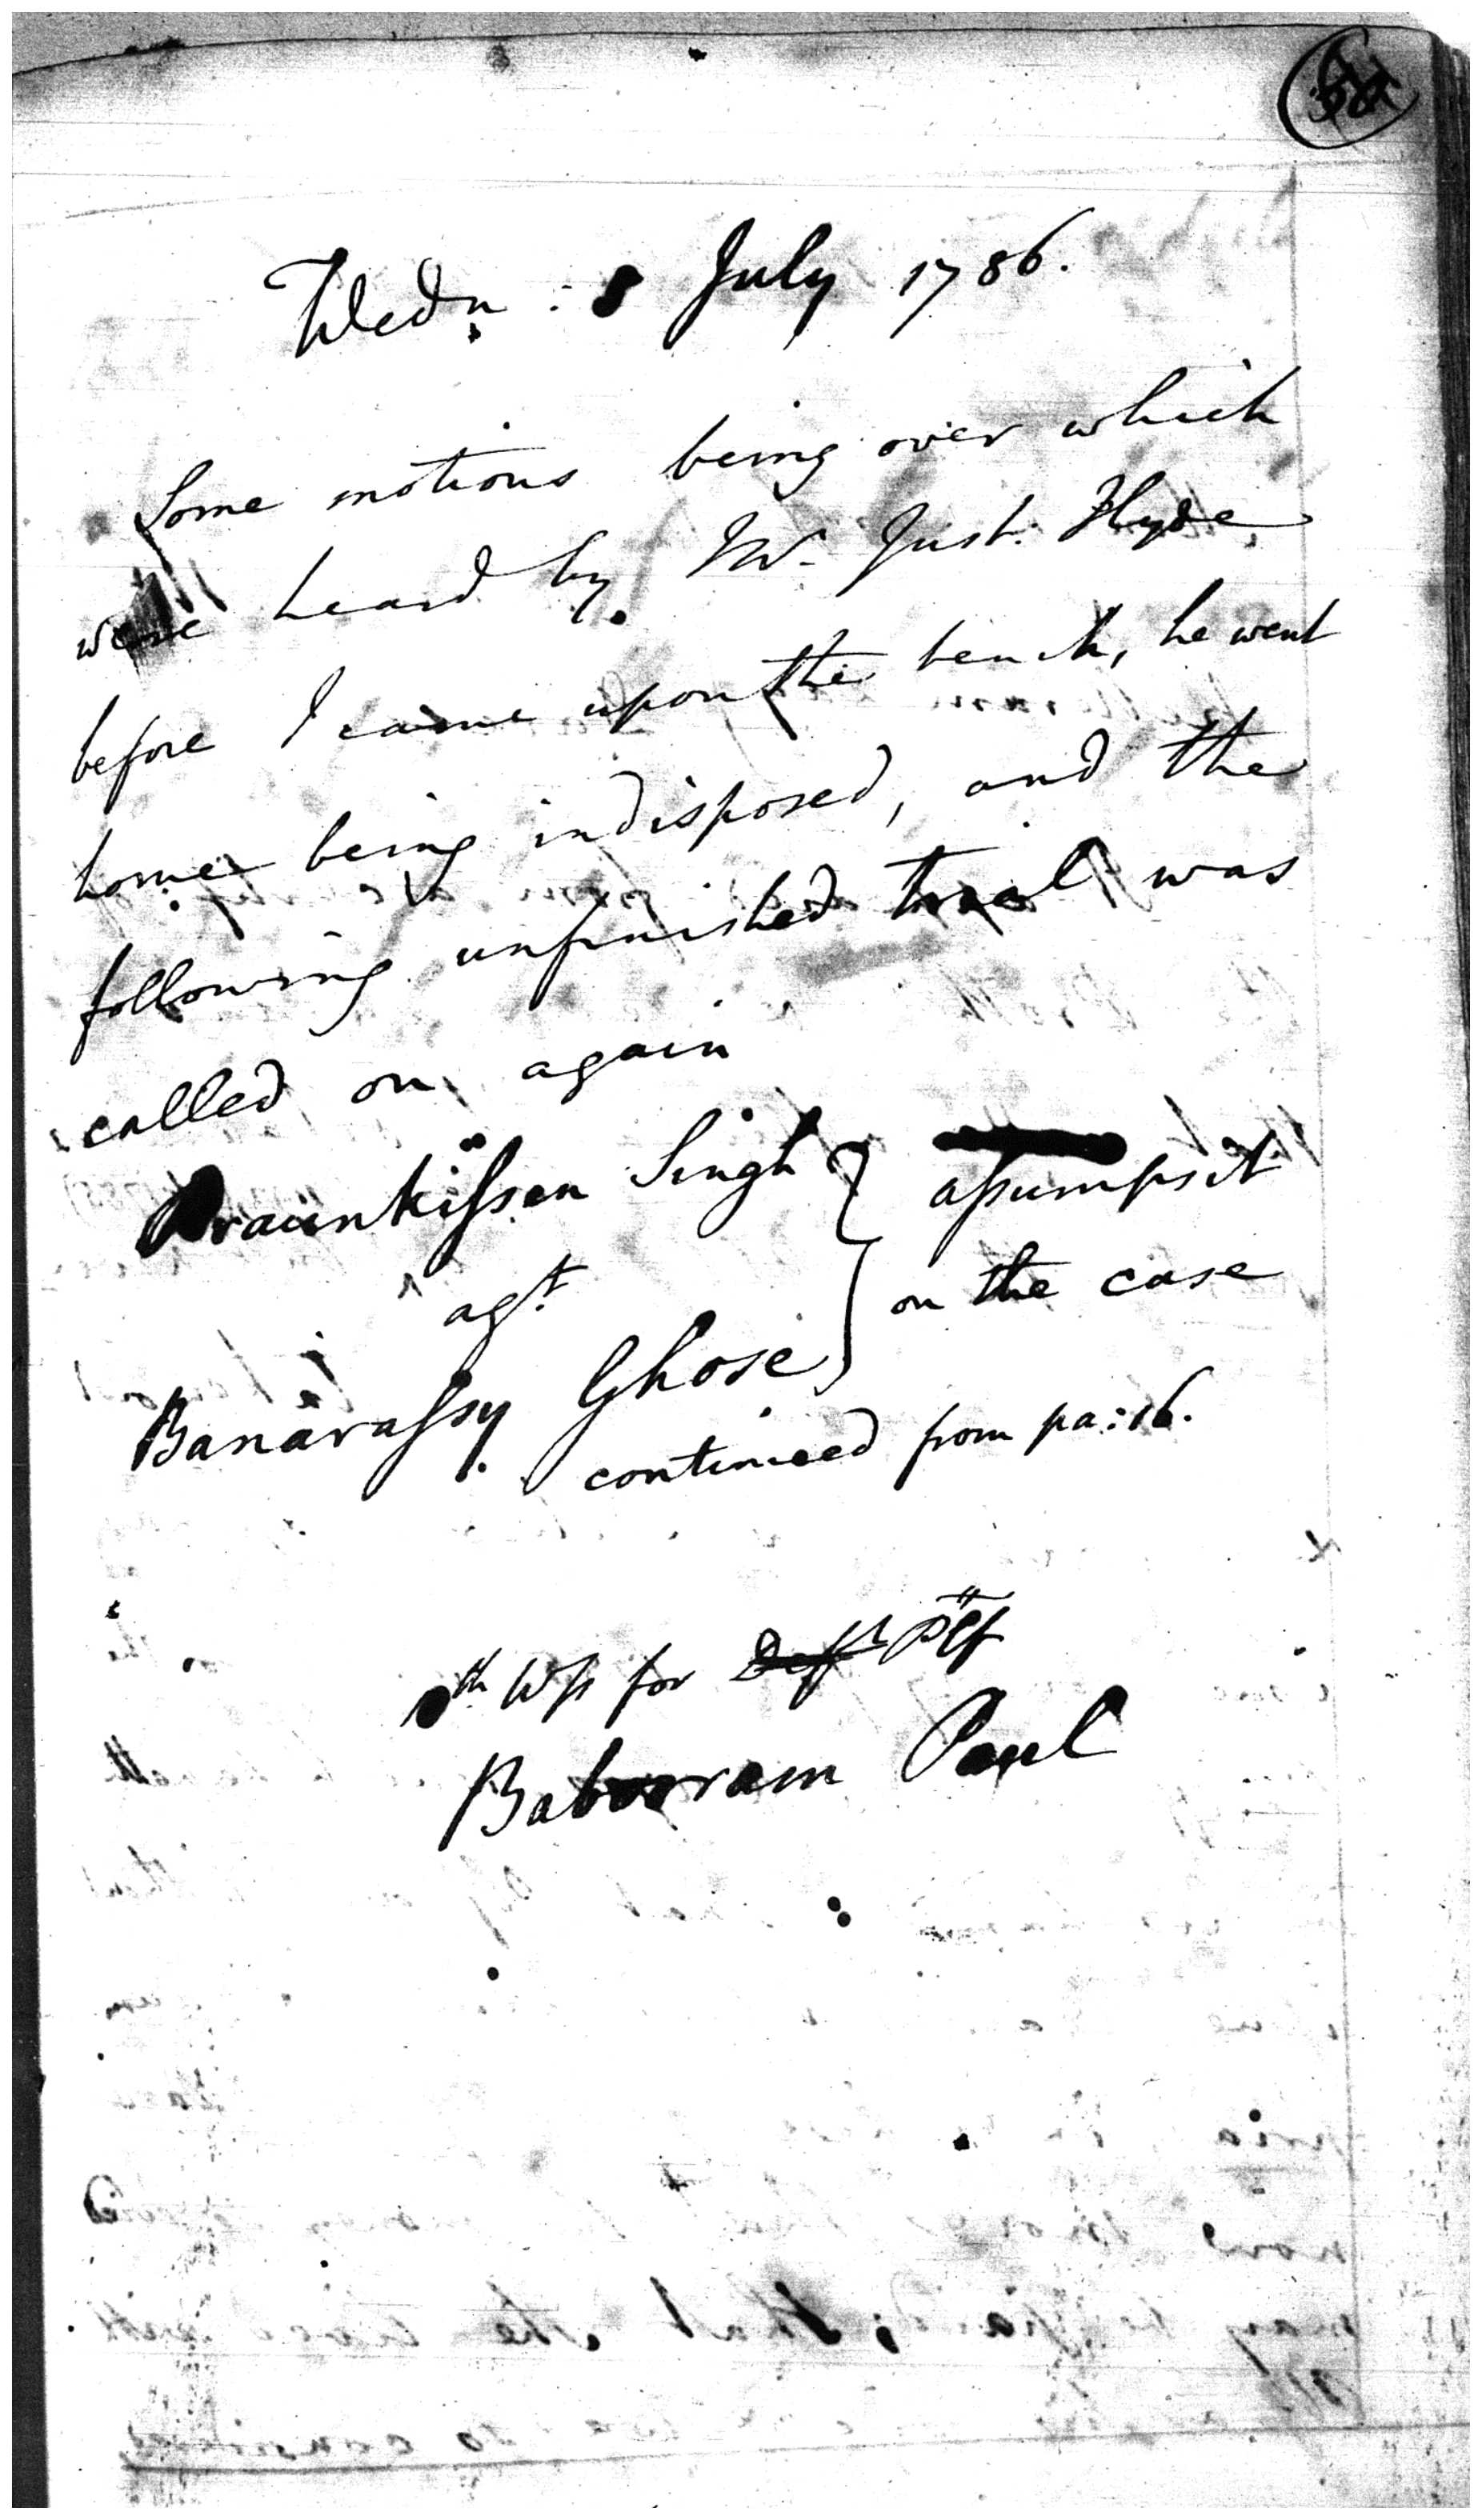 Wedn: 5 July 1786.
Some motions being over which
were heard by Mr. Just. Hyde
before I came upon the bench, he went
home being indisposed, and the
following unfinished trial was
called on again
Praunkissen Singh } assumpsit
agt. } on the case
Banarassy Ghose
continued from pa: 16.
th Wss for Deft Plf
Baboram Paul